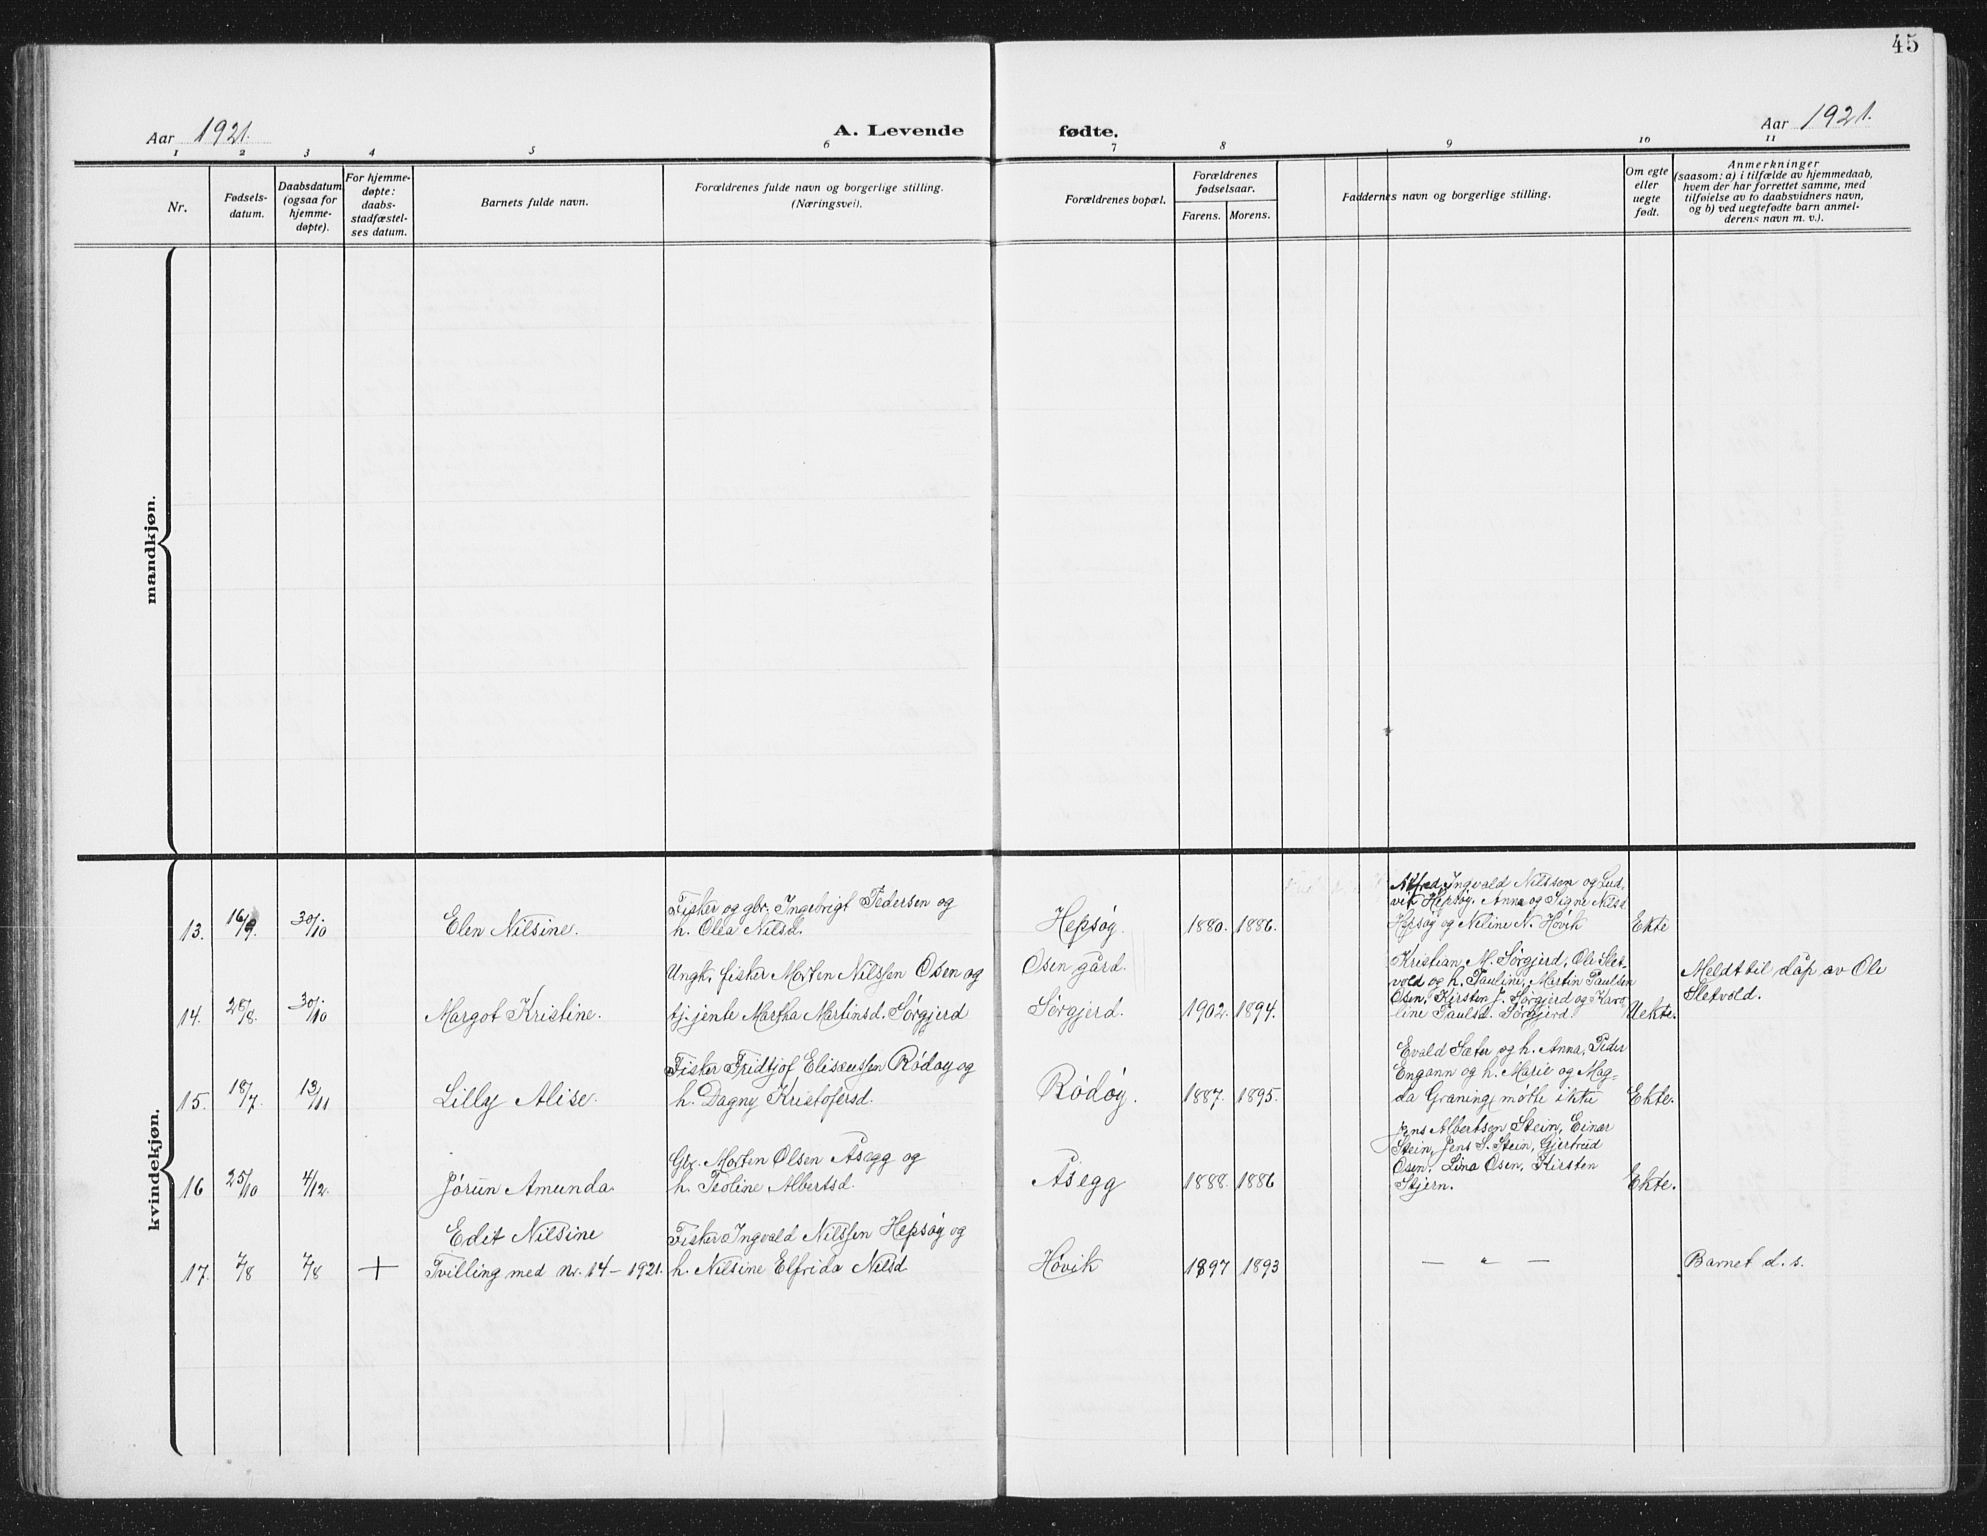 45
Aar 1921.
A. Levende fødte.
Aar 1921.
1 2 3 4 5 6 7 8 9 10 11
Nr.
Fødsels-
datum.
Daabsdatum
(ogsaa for
hjemme-
døpte).
For hjemme-
døpte:
daabs-
stadfæstel-
ses datum.
Barnets fulde navn.
Forældrenes fulde navn og borgerlige stilling.
(Næringsvei).
Forældrenes bopæl.
Forældrenes
fødselsaar.
Farens. Morens.
Faddernes navn og borgerlige stilling.
Om egte
eller
uegte
født.
Anmerkninger
(saasom: a) i tilfælde av hjemmedaab,
hvem der har forrettet samme, med
tilføielse av to daabsvidners navn,
og b) ved uegtefødte barn anmel-
derens navn m. v.).
mandkjøn.
kvindekjøn.
13. 16/9. 30/10
Elen Nilsine.
Fisker og gbr. Ingebrigt Pedersen og
h. Olea Nilsd.
Hepsøy. 1880. 1886.
Alfred, Ingvald Nilssen og Lud-
vik Hepsøy. Anna og Signe Nilsd.
Hepsøy og Neline N. Høvik
Ekte
14. 28/8. 30/10
Margot Kristine.
Ungk. fisker Morten Nilssen Osen og
tj. jente Martha Martinsd. Sørgjerd
Osen gård.
Sørgjerd. 1902. 1894.
Kristian M. Sørgjerd, Ole Slet-
vold og h. Pauline, Martin Paulsen
Osen, Kirsten J. Sørgjerd og Karo-
line Paulsd. Sørgjerd.
Uekte.
Meldt til dåp av Ole
Sletvold.
15. 18/7. 13/11
Lilly Alise.
Fisker Fridtjof Eliseussen Rødøy og
h. Dagny Kristofersd.
Rødøy. 1887. 1895.
Evald Sæter og h. Anna, Peder
Engann og h. Marie og Mag-
da Graning, møtte ikke
Ekte.
16 25/10 4/12.
Jørun Amunda
Gbr. Morten Olsen Åsegg og
h. Teoline Albertsd.
Åsegg 1888. 1886
Jens Albertsen Stein, Einar
Stein, Jens S. Stein, Gjertrud
Osen, Lina Osen, Kirsten
Stjern.
Ekte.
17. 7/8 7/8 +
Edit Nilsine
Tvilling med nr. 14 – 1921.
Fisker Ingvald Nilssen Hepsøy og
h. Nilsine Elfrida Nilsd
Høvik 1897 1893
— " —
Barnet d. s.